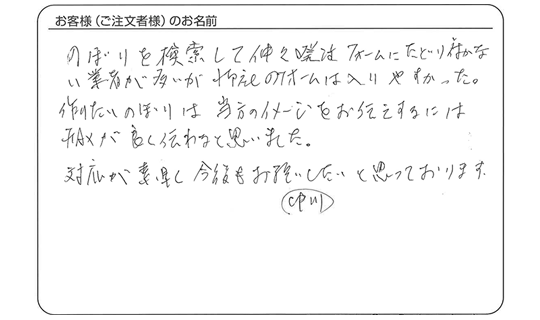 お客様(ご注文者様)のお名前
のぼりを検索して仲々 フォームにたどり付かな
い業者が多いが のフォームは入りやすかった。
作りたいのぼりは 当方のイメージをお伝えするには
FAXが良く伝わると思いました。
対応が素早く 今後もお願いしたいと思っております
中川